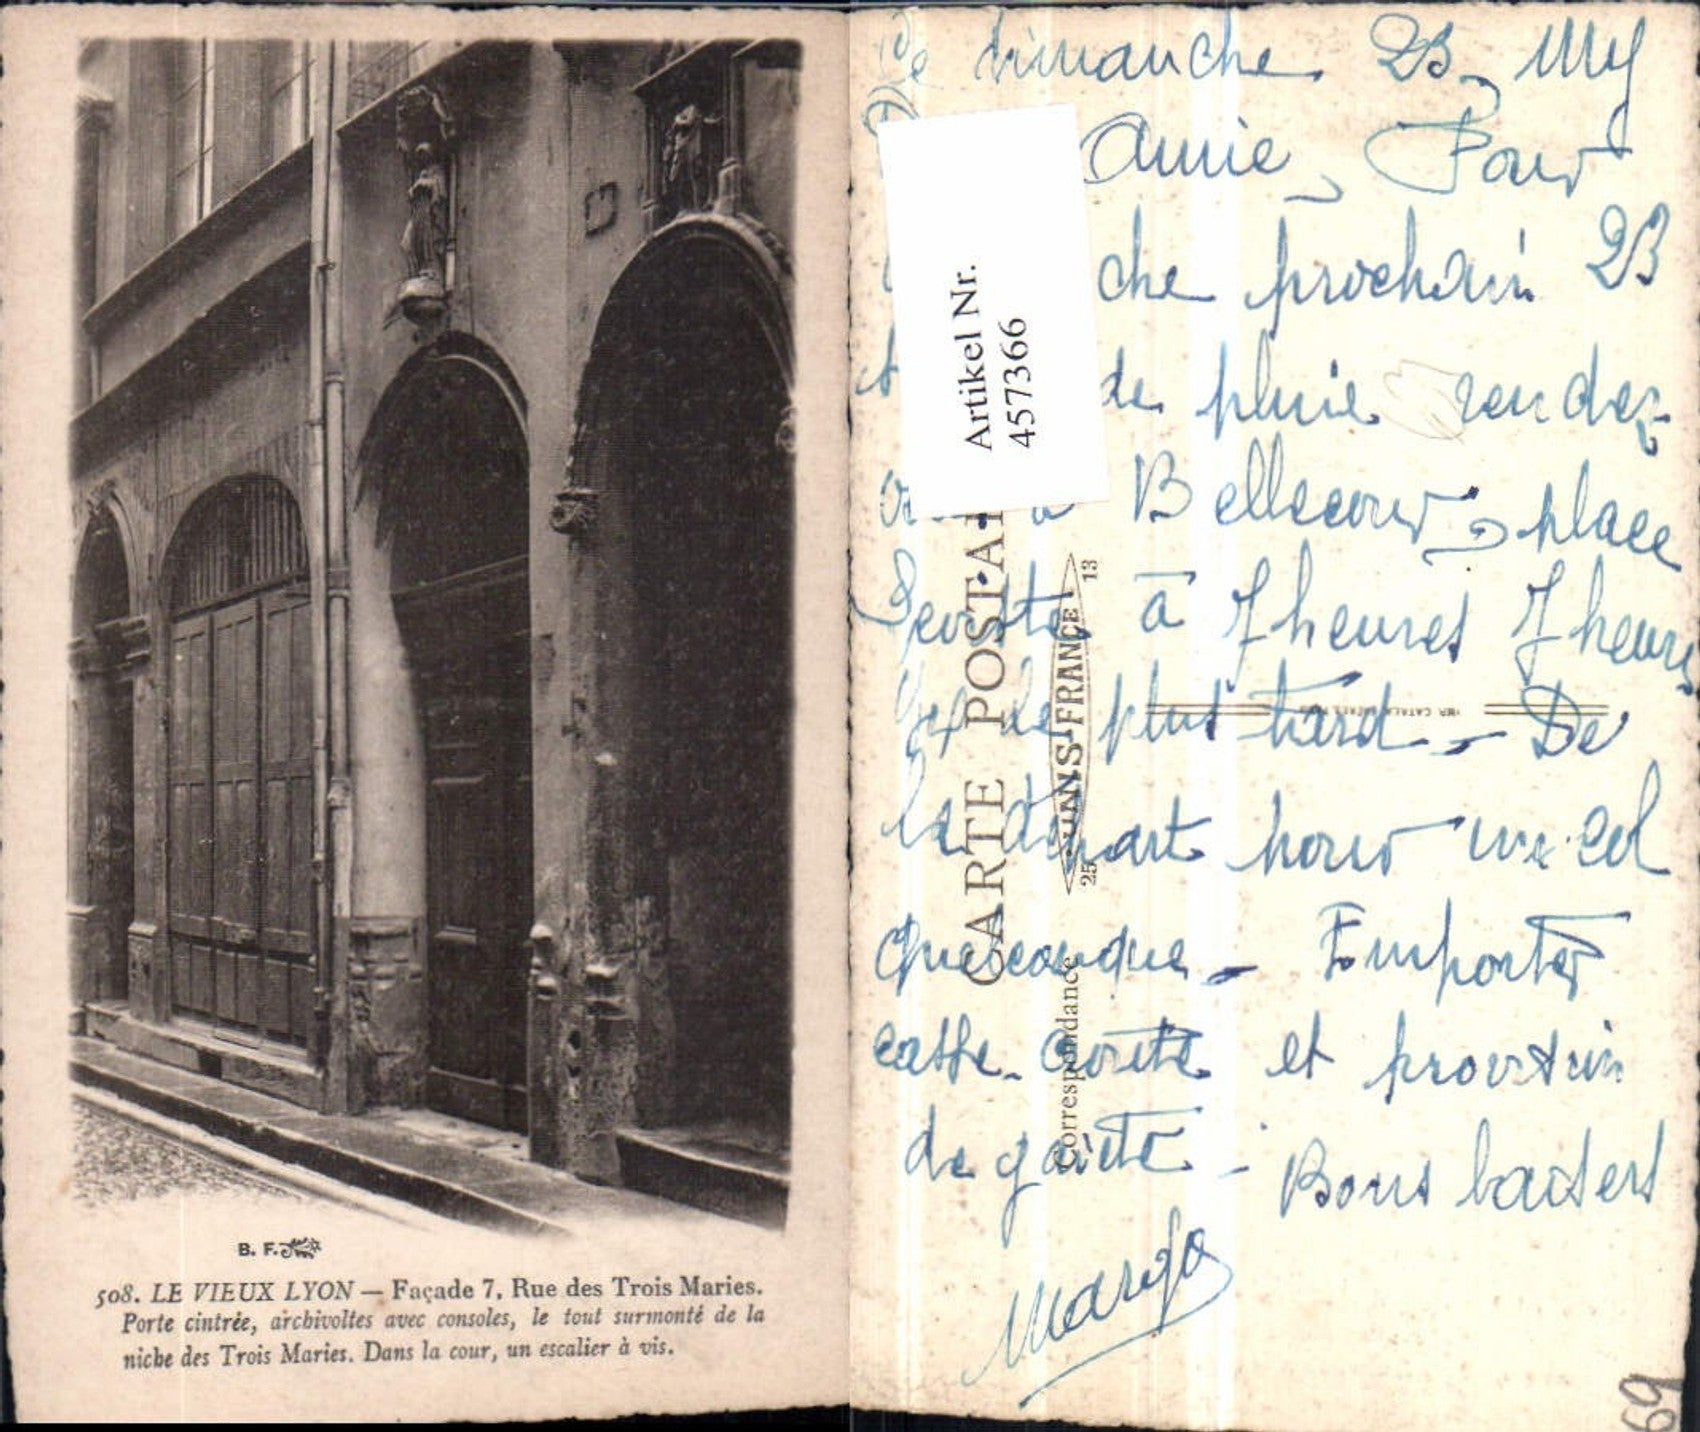 B. F.
508. LE VIEUX LYON — Façade 7, Rue des Trois Maries.
Porte cintrée, archivoltes avec consoles, le tout surmonté de la
niche des Trois Maries. Dans la cour, un escalier à vis.
Artikel Nr.
4573366
CARTE POSTAL
Correspondance
HUNS-FRANCE
25
13
dimanche 23
Amie Pour
che prochain 23
de pluie rendez
à Bellecour place
à 7 heures 7 heures
plus tard - De
départ pour un col
quelconque - Emporter
casse-croûte et provision
de gaîté - Bons baisers
Margo
69